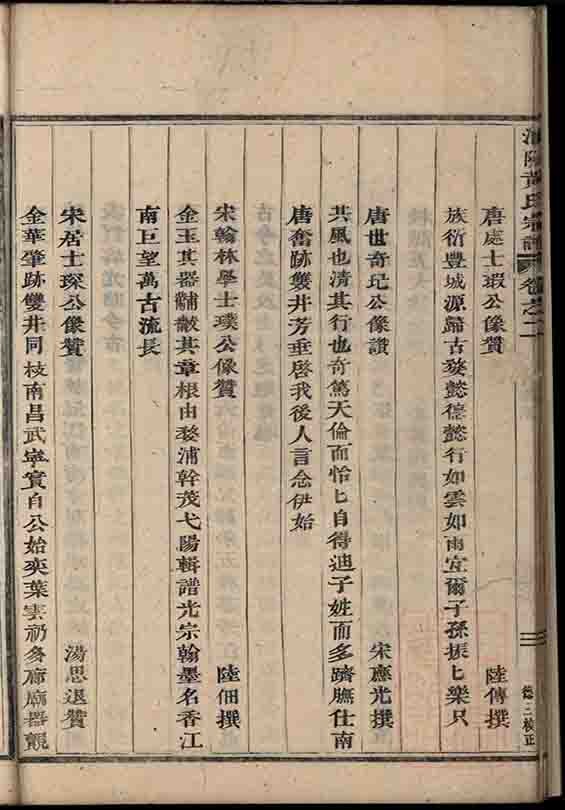 黃氏宗譜 卷之二
三
德三校正
唐處士瑕公像贊 陸傳撰
族衍豐城源歸古婺懿德懿行如雲如雨宜爾子孫振匕樂只
唐世奇玘公像讃 宋應光撰
其風也清其行也奇篤天倫而怡匕自得迪子姓而多躋膴仕南
唐奮跡雙井芳垂啓我後人言念伊始
宋翰林學士璞公像贊 陸佃撰
金玉其器黼黻其章根由婺浦幹茂弋陽輯譜光宗翰墨名香江
南巨望萬古流長
宋居士琛公像贊 湯思退贊
金華肇跡雙井同枝南昌武寧實自公始奕葉雲礽多廊廟器競